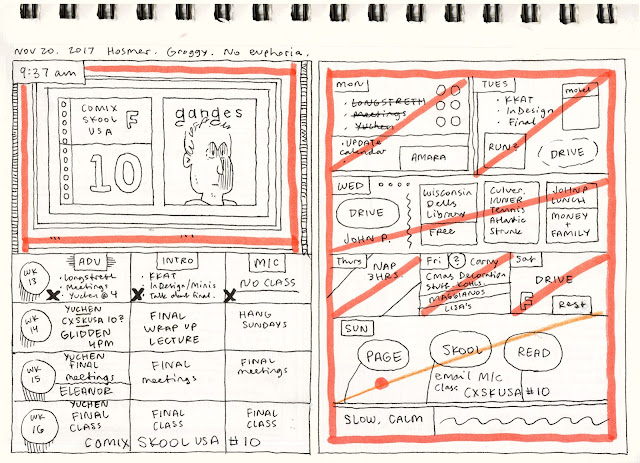 Nov 20. 2017 Hosmer. Groggy. No euphoria.
9:37 am
COMIX
SKOOL
USA
F
10
ganges
ADV
INTRO
M/C
WK
13
• Longstreth
• Meetings
• Yuchen @ 4
• KKAT
• InDesign/Minis
• Talk about final.
NO CLASS
WK
14
YUCHEN
CXSKUSA 10?
GLIDDEN
4PM
FINAL
WRAP UP
LECTURE
HANG
SUNDAYS
WK
15
YUCHEN
FINAL
meetings
ELEANOR
FINAL
meetings
FINAL
meetings
WK
16
YUCHEN
FINAL
CLASS
FINAL
CLASS
FINAL
CLASS
COMIX SKOOL USA #10
MON
• LONGSTRETH
• Meetings
• Yuchen
• UPDATE
calendar
AMARA
TUES
• KKAT
• InDesign
• Final
RUN?
DRIVE
WED
DRIVE
JOHN P.
Wisconsin
Dells
Library
Free
Culver.
INNER
Tennis
Atlantic
Strunk
JOHN P
LUNCH
MONEY
+
FAMILY
Thurs
NAP
3 HRS.
Fri
?
Corny
Cmas Decoration
Stuff KOHLS
MAGGIANOS
LISA'S
Sat
DRIVE
F
Rest
SUN
PAGE
SKOOL
READ
email M/C
class CXSKUSA #10
SLOW, CALM